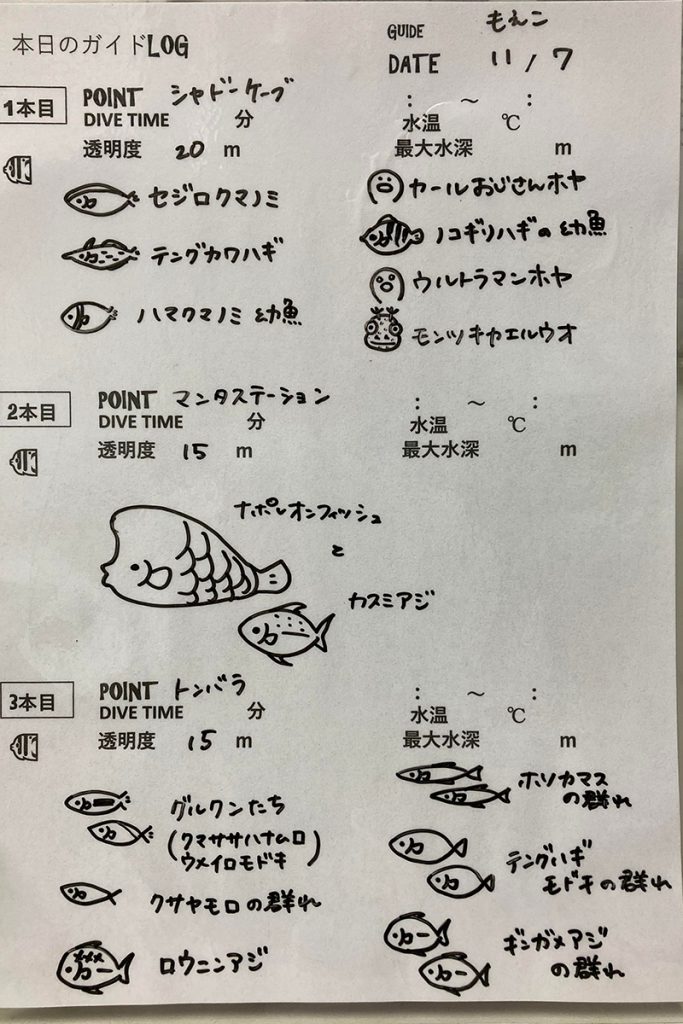 本日のガイドLOG
GUIDE もえこ
DATE 11/7
1本目
POINT シャドーケーブ
DIVE TIME 分
透明度 20 m
: ～ :
水温 ℃
最大水深 m
セジロクマノミ
テングカワハギ
ハマクマノミ幼魚
カールおじさんホヤ
ノコギリハギの幼魚
ウルトラマンホヤ
モンツキカエルウオ
2本目
POINT マンタステーション
DIVE TIME 分
透明度 15 m
: ～ :
水温 ℃
最大水深 m
ナポレオンフィッシュ
と
カスミアジ
3本目
POINT トンバラ
DIVE TIME 分
透明度 15 m
: ～ :
水温 ℃
最大水深 m
グルクンたち
(クマササハナムロ
ウメイロモドキ)
クサヤモロの群れ
ロウニンアジ
ホソカマス
の群れ
テングハギ
モドキの群れ
ギンガメアジ
の群れ